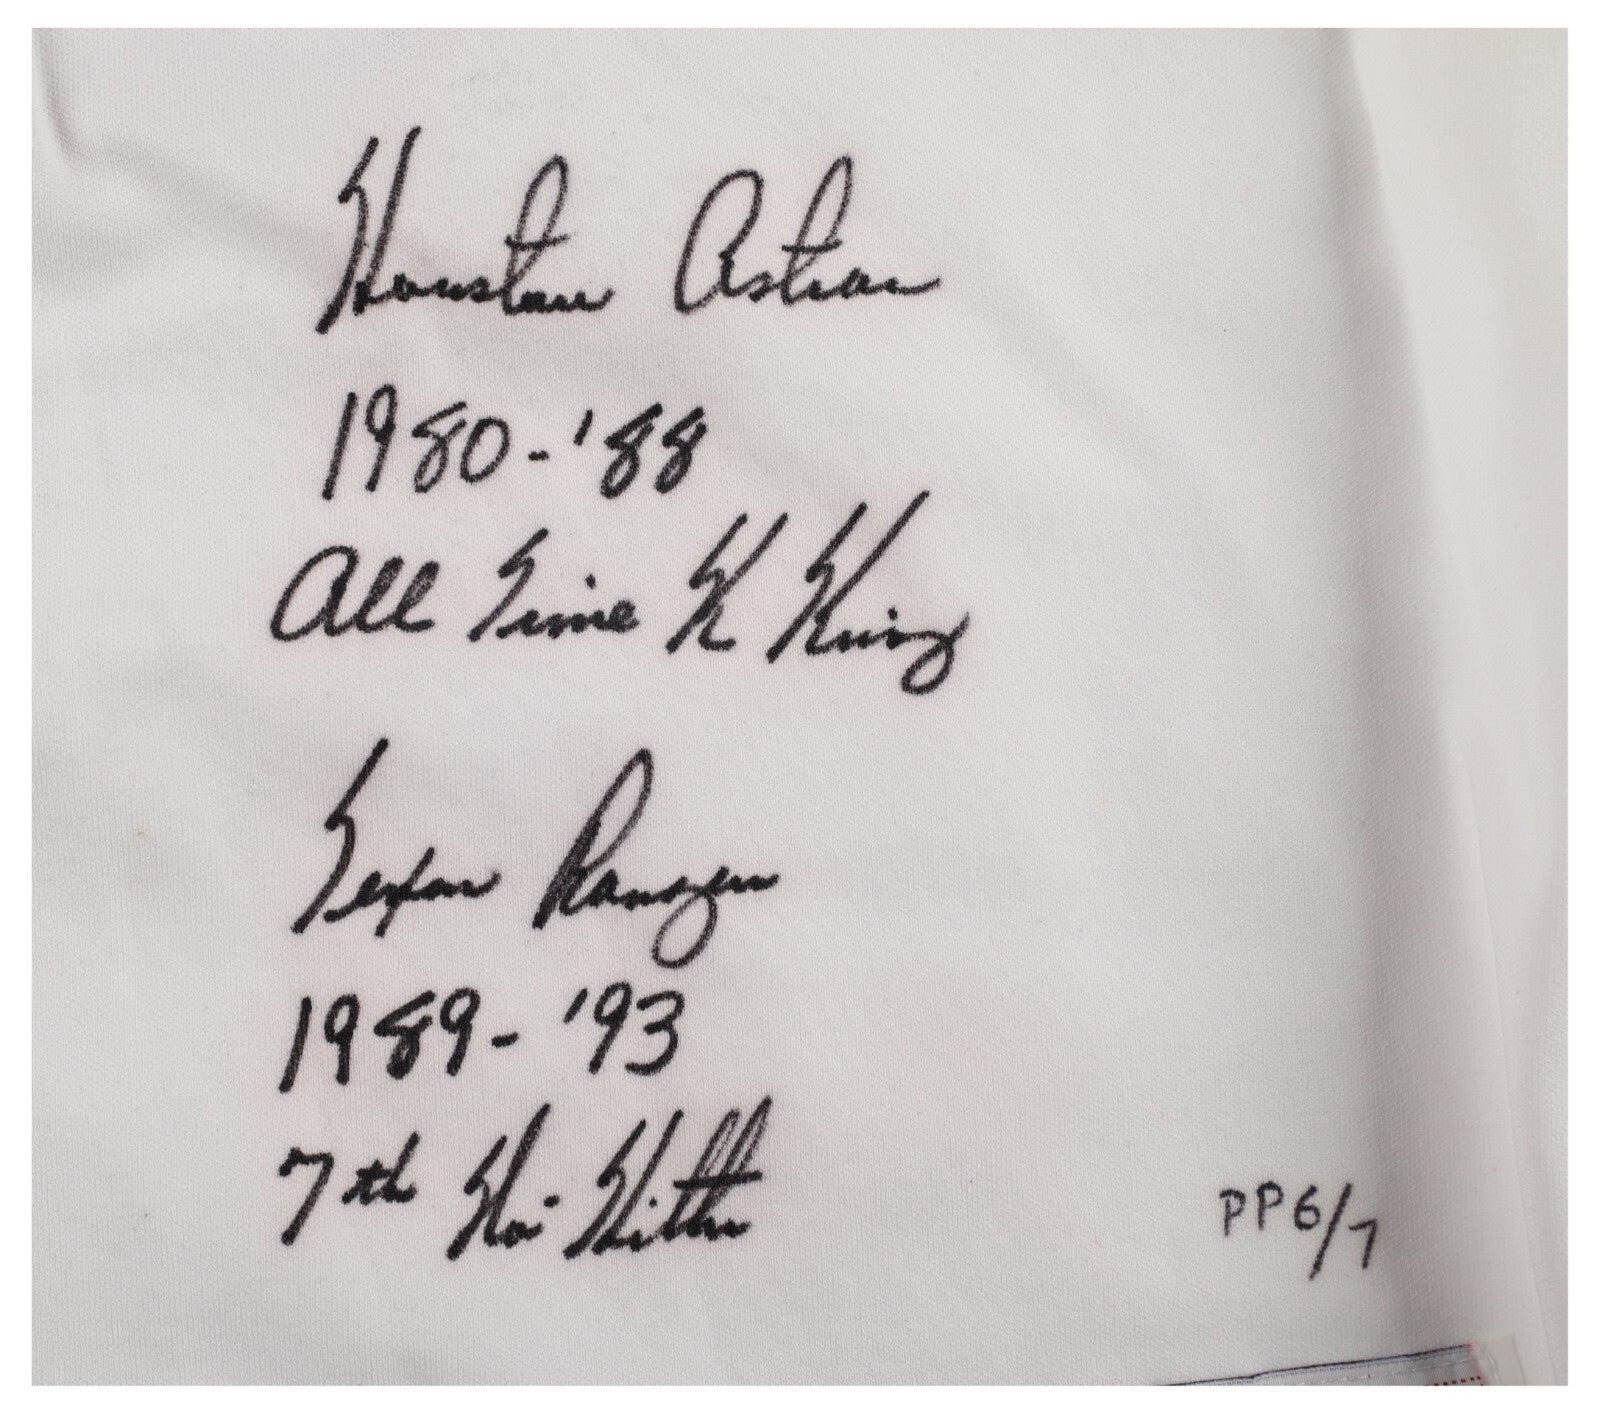 Houston Astros
1980-'88
All Time K King
Texas Rangers
1989-'93
7th No-Hitter
PP6/7